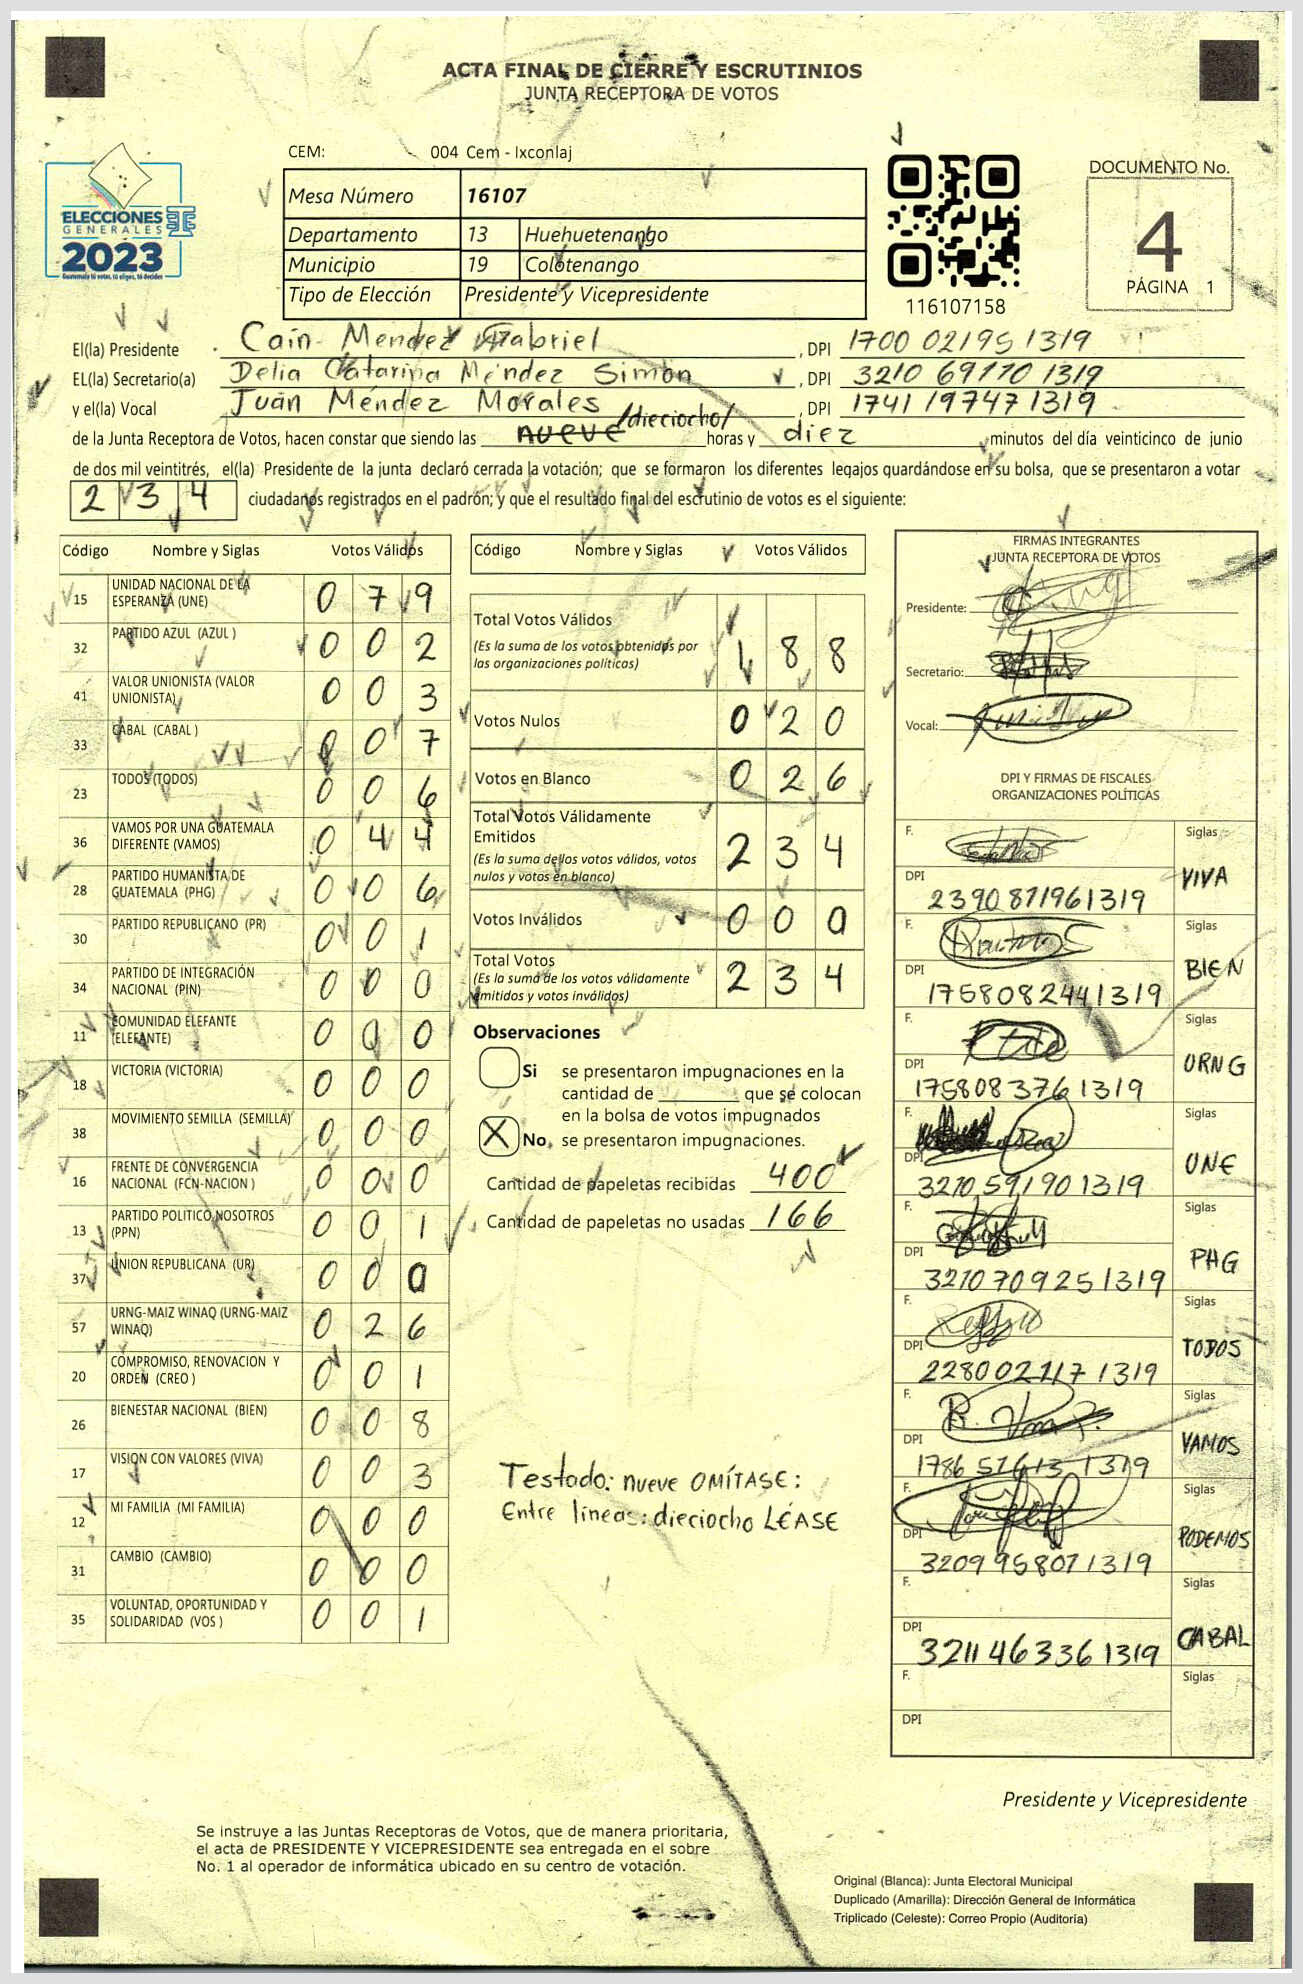 ACTA FINAL DE CIERRE Y ESCRUTINIOS
JUNTA RECEPTORA DE VOTOS
CEM: 004 Cem - Ixconlaj
Mesa Número 16107
Departamento 13 Huehuetenango
Municipio 19 Colotenango
Tipo de Elección Presidente y Vicepresidente
ELECCIONES
GENERALES
2023
Guatemala tú votas, tú eliges, tú decides
116107158
DOCUMENTO No.
4
PÁGINA 1
El(la) Presidente Caín Mendez Gabriel, DPI 1700 02195 1319
EL(la) Secretario(a) Delia Catarina Méndez Simón, DPI 3210 69770 1319
y el(la) Vocal Juán Méndez Morales, DPI 1741 19747 1319
/dieciocho/
de la Junta Receptora de Votos, hacen constar que siendo las nueve horas y diez minutos del día veinticinco de junio
de dos mil veintitrés, el(la) Presidente de la junta declaró cerrada la votación; que se formaron los diferentes legajos quardándose en su bolsa, que se presentaron a votar
234 ciudadanos registrados en el padrón; y que el resultado final del escrutinio de votos es el siguiente:
Código Nombre y Siglas Votos Válidos
15 UNIDAD NACIONAL DE LA ESPERANZA (UNE) 0 7 9
32 PARTIDO AZUL (AZUL ) 0 0 2
41 VALOR UNIONISTA (VALOR UNIONISTA) 0 0 3
33 CABAL (CABAL ) 0 0 7
23 TODOS (TODOS) 0 0 6
36 VAMOS POR UNA GUATEMALA DIFERENTE (VAMOS) 0 4 4
28 PARTIDO HUMANISTA DE GUATEMALA (PHG) 0 0 6
30 PARTIDO REPUBLICANO (PR) 0 0 1
34 PARTIDO DE INTEGRACIÓN NACIONAL (PIN) 0 0 0
11 COMUNIDAD ELEFANTE (ELEFANTE) 0 0 0
18 VICTORIA (VICTORIA) 0 0 0
38 MOVIMIENTO SEMILLA (SEMILLA) 0 0 0
16 FRENTE DE CONVERGENCIA NACIONAL (FCN-NACION ) 0 0 0
13 PARTIDO POLITICO NOSOTROS (PPN) 0 0 1
37 UNION REPUBLICANA (UR) 0 0 0
57 URNG-MAIZ WINAQ (URNG-MAIZ WINAQ) 0 2 6
20 COMPROMISO, RENOVACION Y ORDEN (CREO ) 0 0 1
26 BIENESTAR NACIONAL (BIEN) 0 0 8
17 VISION CON VALORES (VIVA) 0 0 3
12 MI FAMILIA (MI FAMILIA) 0 0 0
31 CAMBIO (CAMBIO) 0 0 0
35 VOLUNTAD, OPORTUNIDAD Y SOLIDARIDAD (VOS ) 0 0 1
Código Nombre y Siglas Votos Válidos
Total Votos Válidos 1 8 8
(Es la suma de los votos obtenidos por
las organizaciones políticas)
Votos Nulos 0 2 0
Votos en Blanco 0 2 6
Total Votos Válidamente
Emitidos 2 3 4
(Es la suma de los votos válidos, votos
nulos y votos en blanco)
Votos Inválidos 0 0 0
Total Votos 2 3 4
(Es la suma de los votos válidamente
emitidos y votos inválidos)
Observaciones
Si se presentaron impugnaciones en la
cantidad de ________ que se colocan
en la bolsa de votos impugnados
X No se presentaron impugnaciones.
Cantidad de papeletas recibidas 400
Cantidad de papeletas no usadas 166
Testado: nueve OMÍTASE:
Entre líneas: dieciocho LÉASE
FIRMAS INTEGRANTES
JUNTA RECEPTORA DE VOTOS
Presidente:
Secretario:
Vocal:
DPI Y FIRMAS DE FISCALES
ORGANIZACIONES POLÍTICAS
F. Siglas
DPI VIVA
2390 87196 1319
F. Siglas
DPI BIEN
1758 08244 1319
F. Siglas
DPI URNG
1758 08376 1319
F. Siglas
DPI UNE
3210 59190 1319
F. Siglas
DPI PHG
3210 70925 1319
F. Siglas
DPI TODOS
2280 02117 1319
F. Siglas
DPI VAMOS
1319
F. Siglas
DPI PODEMOS
3209 95807 1319
F. Siglas
DPI CABAL
3211 46336 1319
F. Siglas
DPI
Presidente y Vicepresidente
Se instruye a las Juntas Receptoras de Votos, que de manera prioritaria,
el acta de PRESIDENTE Y VICEPRESIDENTE sea entregada en el sobre
No. 1 al operador de informática ubicado en su centro de votación.
Original (Blanca): Junta Electoral Municipal
Duplicado (Amarilla): Dirección General de Informática
Triplicado (Celeste): Correo Propio (Auditoría)